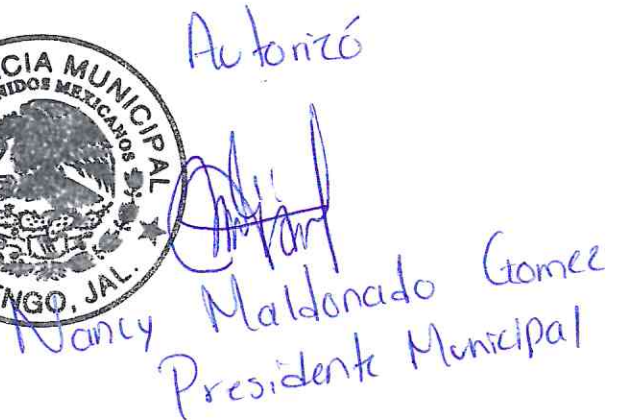 Autorizó
CIA MUNICIPAL
NIDOS MEXICANOS
NGO, JAL.
Nancy Maldonado Gomez
Presidente Municipal